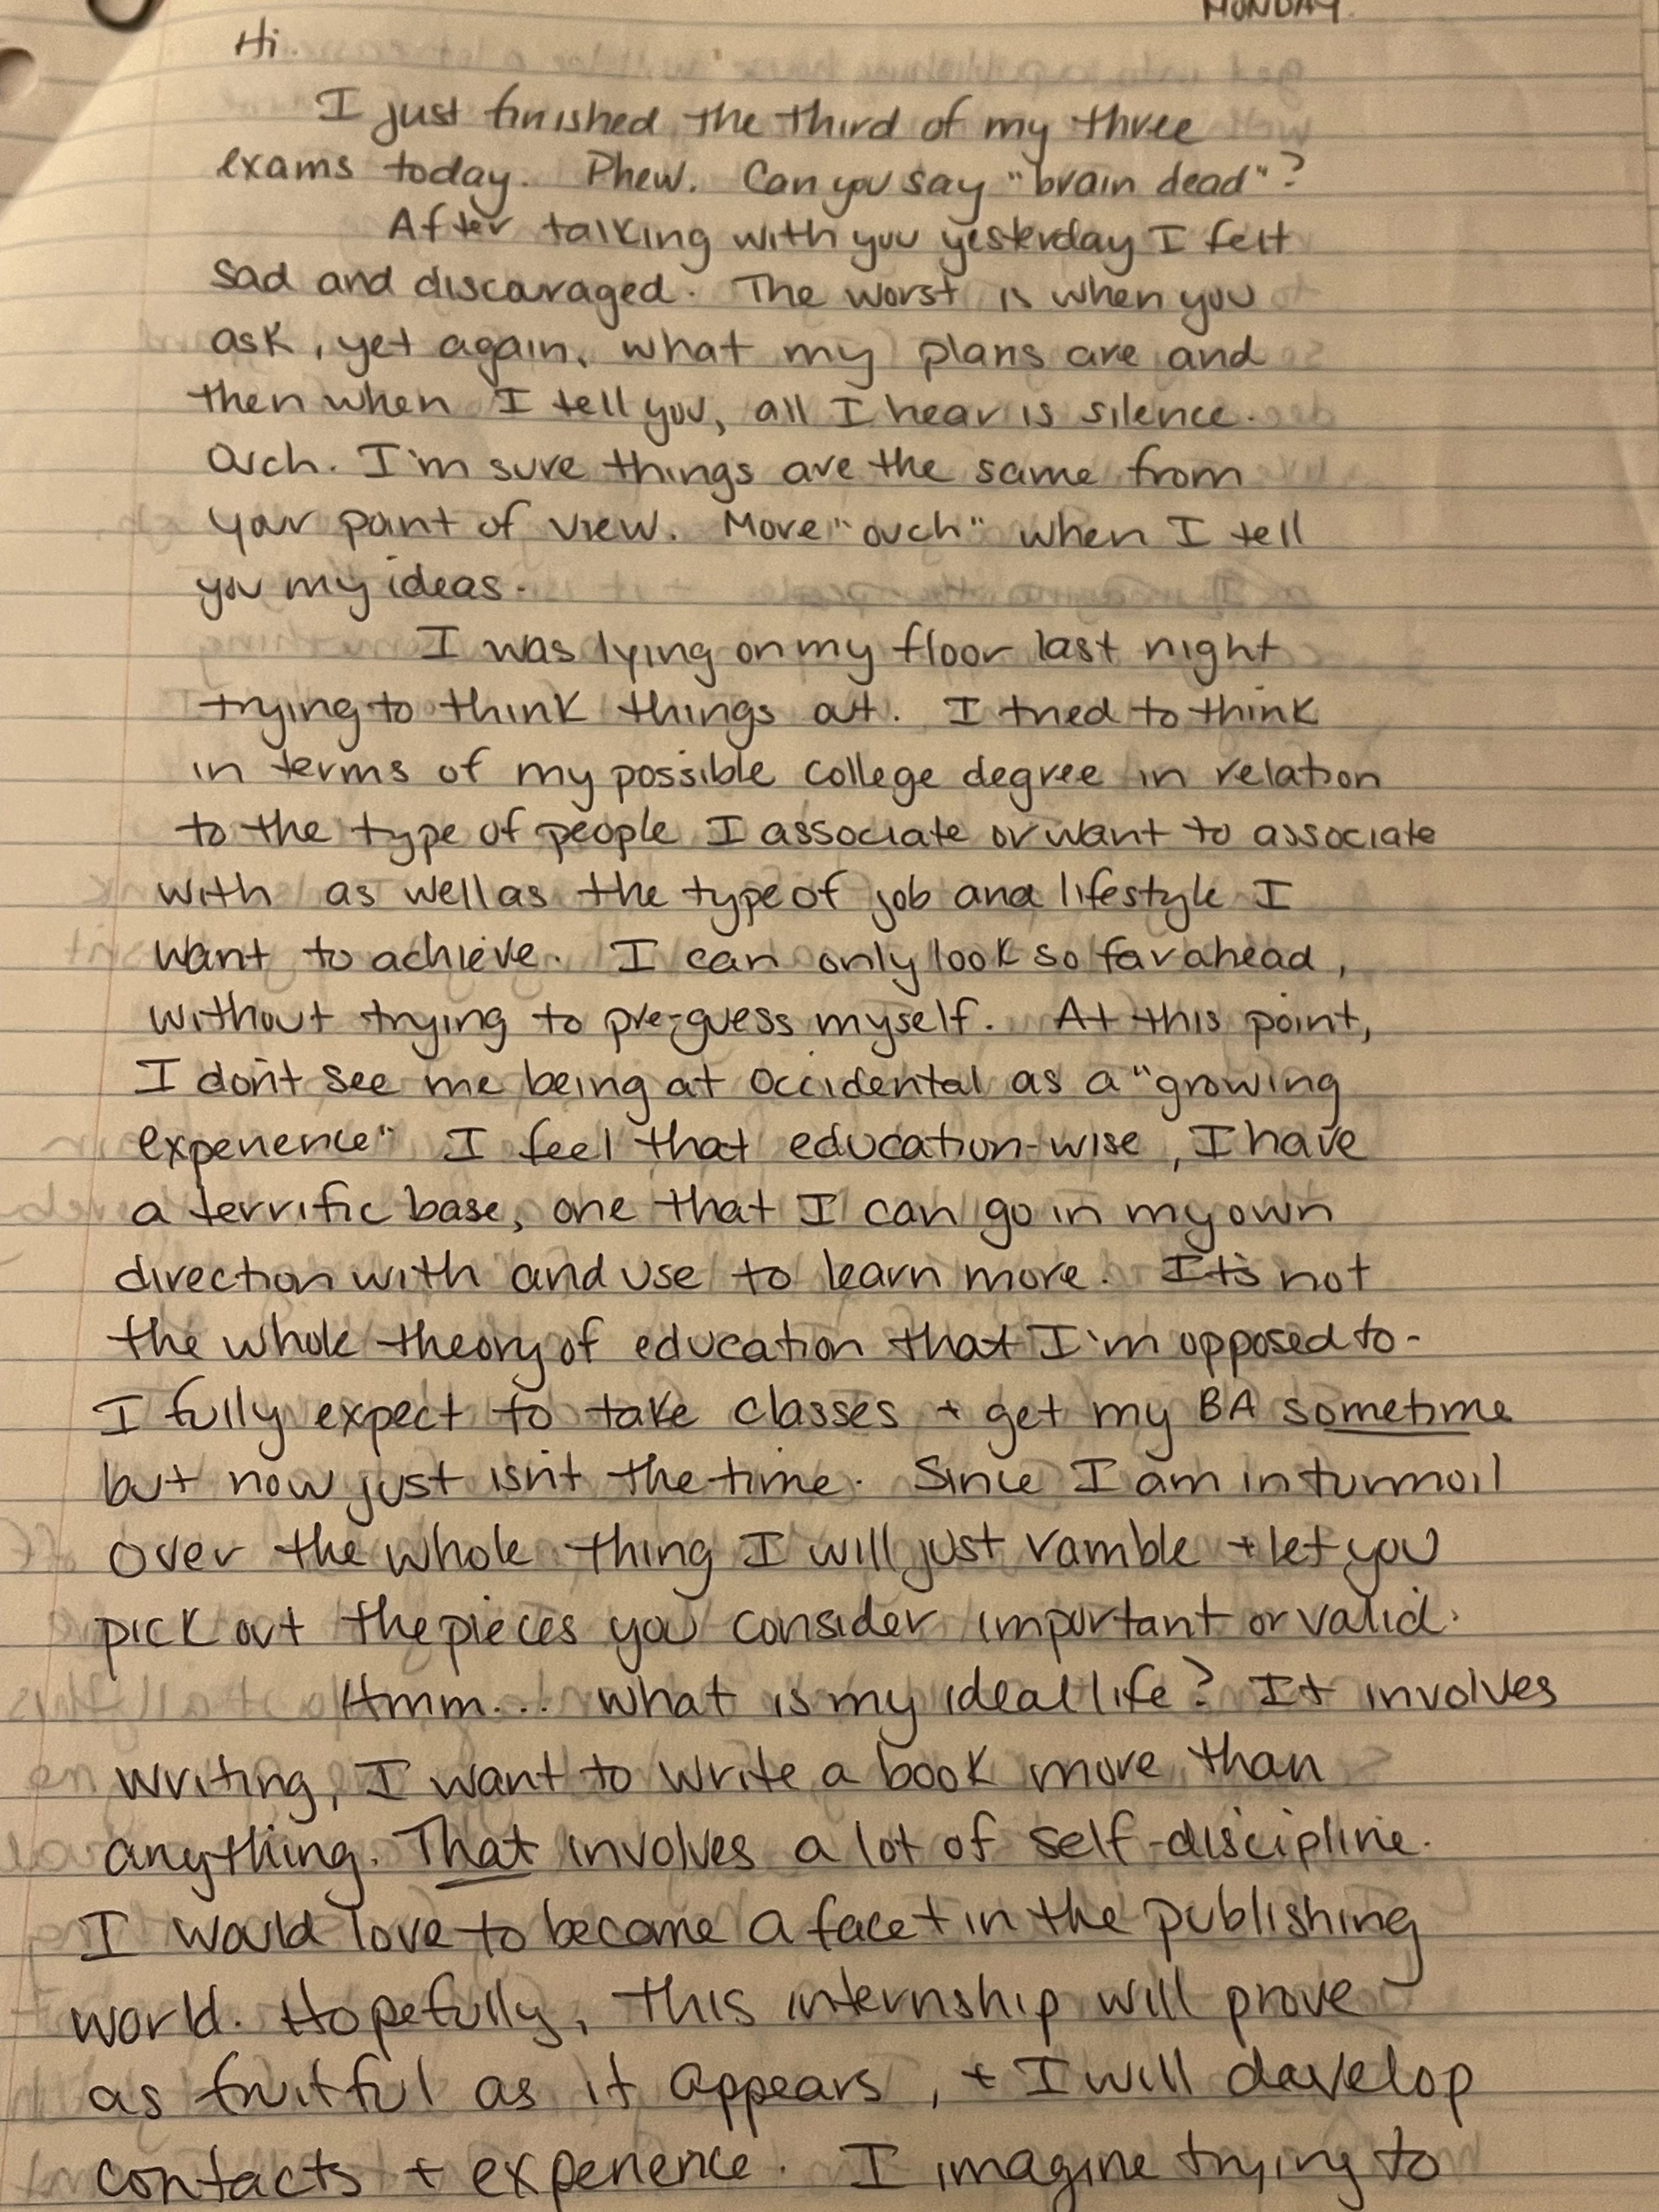 MONDAY.
Hi.
I just finished the third of my three
exams today. Phew. Can you say "brain dead"?
After talking with you yesterday I felt
sad and discouraged. The worst is when you
ask, yet again, what my plans are and
then when I tell you, all I hear is silence.
Ouch. I'm sure things are the same from
your point of view. More "ouch" when I tell
you my ideas.
I was lying on my floor last night
trying to think things out. I tried to think
in terms of my possible college degree in relation
to the type of people I associate or want to associate
with as well as the type of job and lifestyle I
want to achieve. I can only look so far ahead,
without trying to pre-guess myself. At this point,
I don't see me being at Occidental as a "growing
experience" I feel that education-wise, I have
a terrific base, one that I can go in my own
direction with and use to learn more. It's not
the whole theory of education that I'm opposed to-
I fully expect to take classes + get my BA sometime
but now just isn't the time. Since I am in turmoil
over the whole thing I will just ramble + let you
pick out the pieces you consider important or valid.
Hmm... what is my ideal life? It involves
writing, I want to write a book more than
anything. That involves a lot of self-discipline.
I would love to become a facet in the publishing
world. Hopefully, this internship will prove
as fruitful as it appears, + I will develop
contacts + experience. I imagine trying to